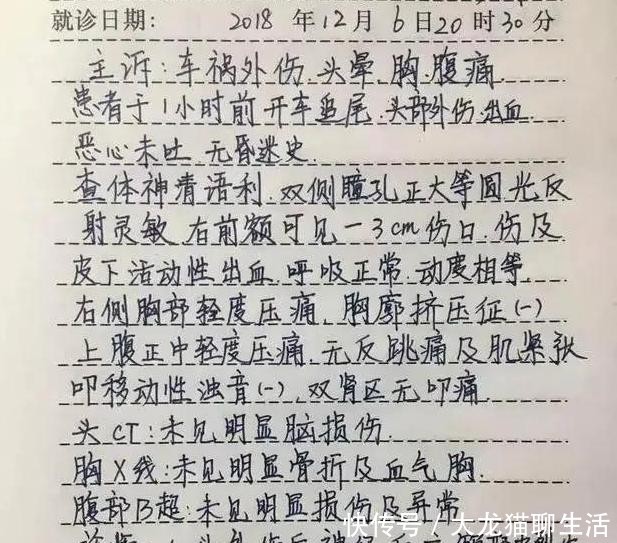 就诊日期: 2018 年 12 月 6 日 20 时 30 分
主诉:车祸外伤.头晕.胸.腹痛
患者于1小时前开车追尾.头部外伤.出血
恶心未吐.无昏迷史.
查体神清语利.双侧瞳孔正大等圆光反
射灵敏 右前额可见一3cm伤口.伤及
皮下活动性出血.呼吸正常.动度相等.
右侧胸部轻度压痛.胸廓挤压征(-)
上腹正中轻度压痛.无反跳痛及肌紧张
叩移动性浊音(-).双肾区无叩痛
头CT:未见明显脑损伤.
胸X线:未见明显骨折及血气胸.
腹部B超:未见明显损伤及异常
快传号/大龙猫聊生活